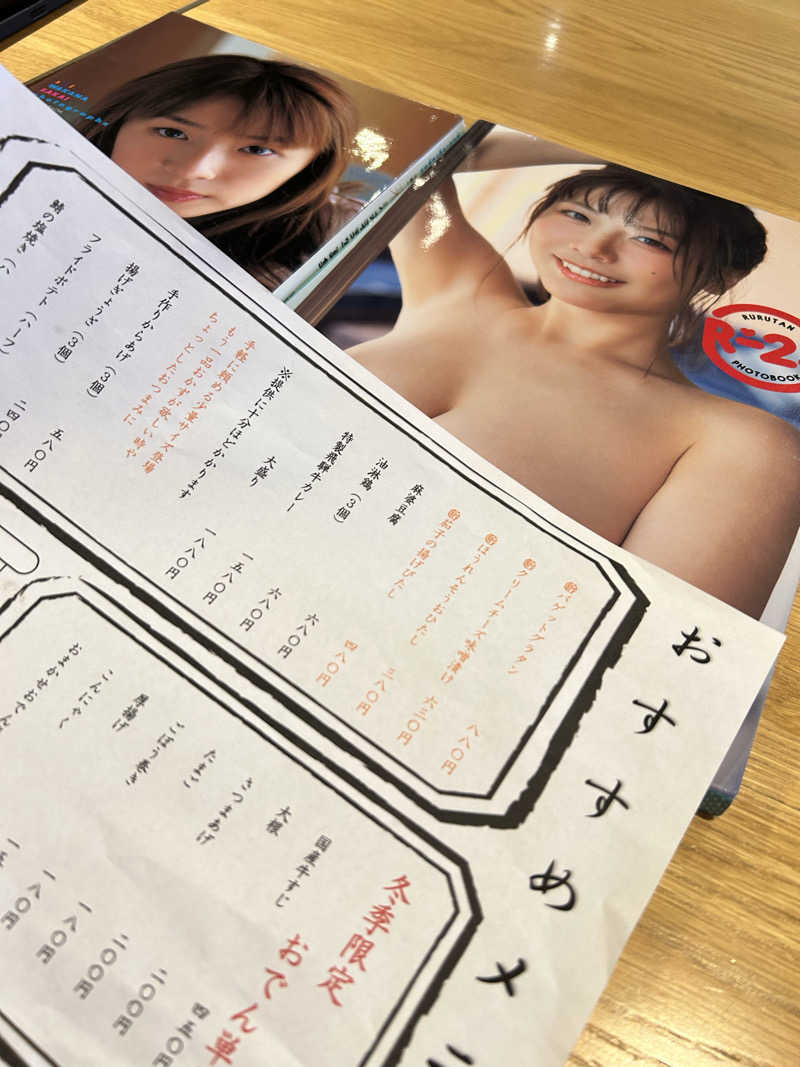 WAKANA
SAKAI
Photographs
RURUTAN
R-2
PHOTOBOOK
おすすめメニ
㊟バゲットグラタン 八八〇円
㊟クリームチーズ味噌漬け 六三〇円
㊟ほうれんそうおひたし 三八〇円
㊟茄子の揚げびたし 四八〇円
麻婆豆腐 六八〇円
油淋鶏(3個) 六八〇円
特製飛騨牛カレー 一五八〇円
大盛り 一八八〇円
※提供に十分ほどかかります
手軽に頼める少量サイズ登場
もう一品おかずが欲しい時や
ちょっとしたおつまみに
手作りからあげ(3個)
揚げぎょうざ(3個)
フライドポテト(ハーフ) 五八〇円
鯖の塩焼き(ハ 二四〇円
冬季限定 おでん単
国産牛すじ 四五〇円
大根 二〇〇円
さつまあげ 二〇〇円
たまご 一八〇円
ごぼう巻き
厚揚げ
こんにゃく
おまかせおでん